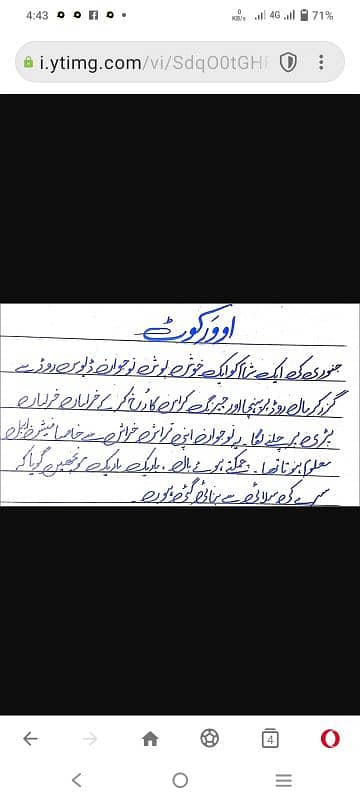 4:43
0 KB/s 4G 71%
i.ytimg.com/vi/SdqO0tGH
اوورکوٹ
جنوری کی ایک شام کو ایک خوش پوش نوجوان ڈیوس روڈ سے
گزر کر مال روڈ پر پہنچا اور چیرنگ کراس کا رُخ کر کے خراماں خراماں
پٹڑی پر چلنے لگا۔ یہ نوجوان اپنی تراش خراش سے خاصا فیشن ایبل
معلوم ہوتا تھا۔ چمکتے ہوئے بال، باریک باریک مونچھیں گویا کہ
سرمے کی سلائی سے بنائی گئی ہوں۔
4